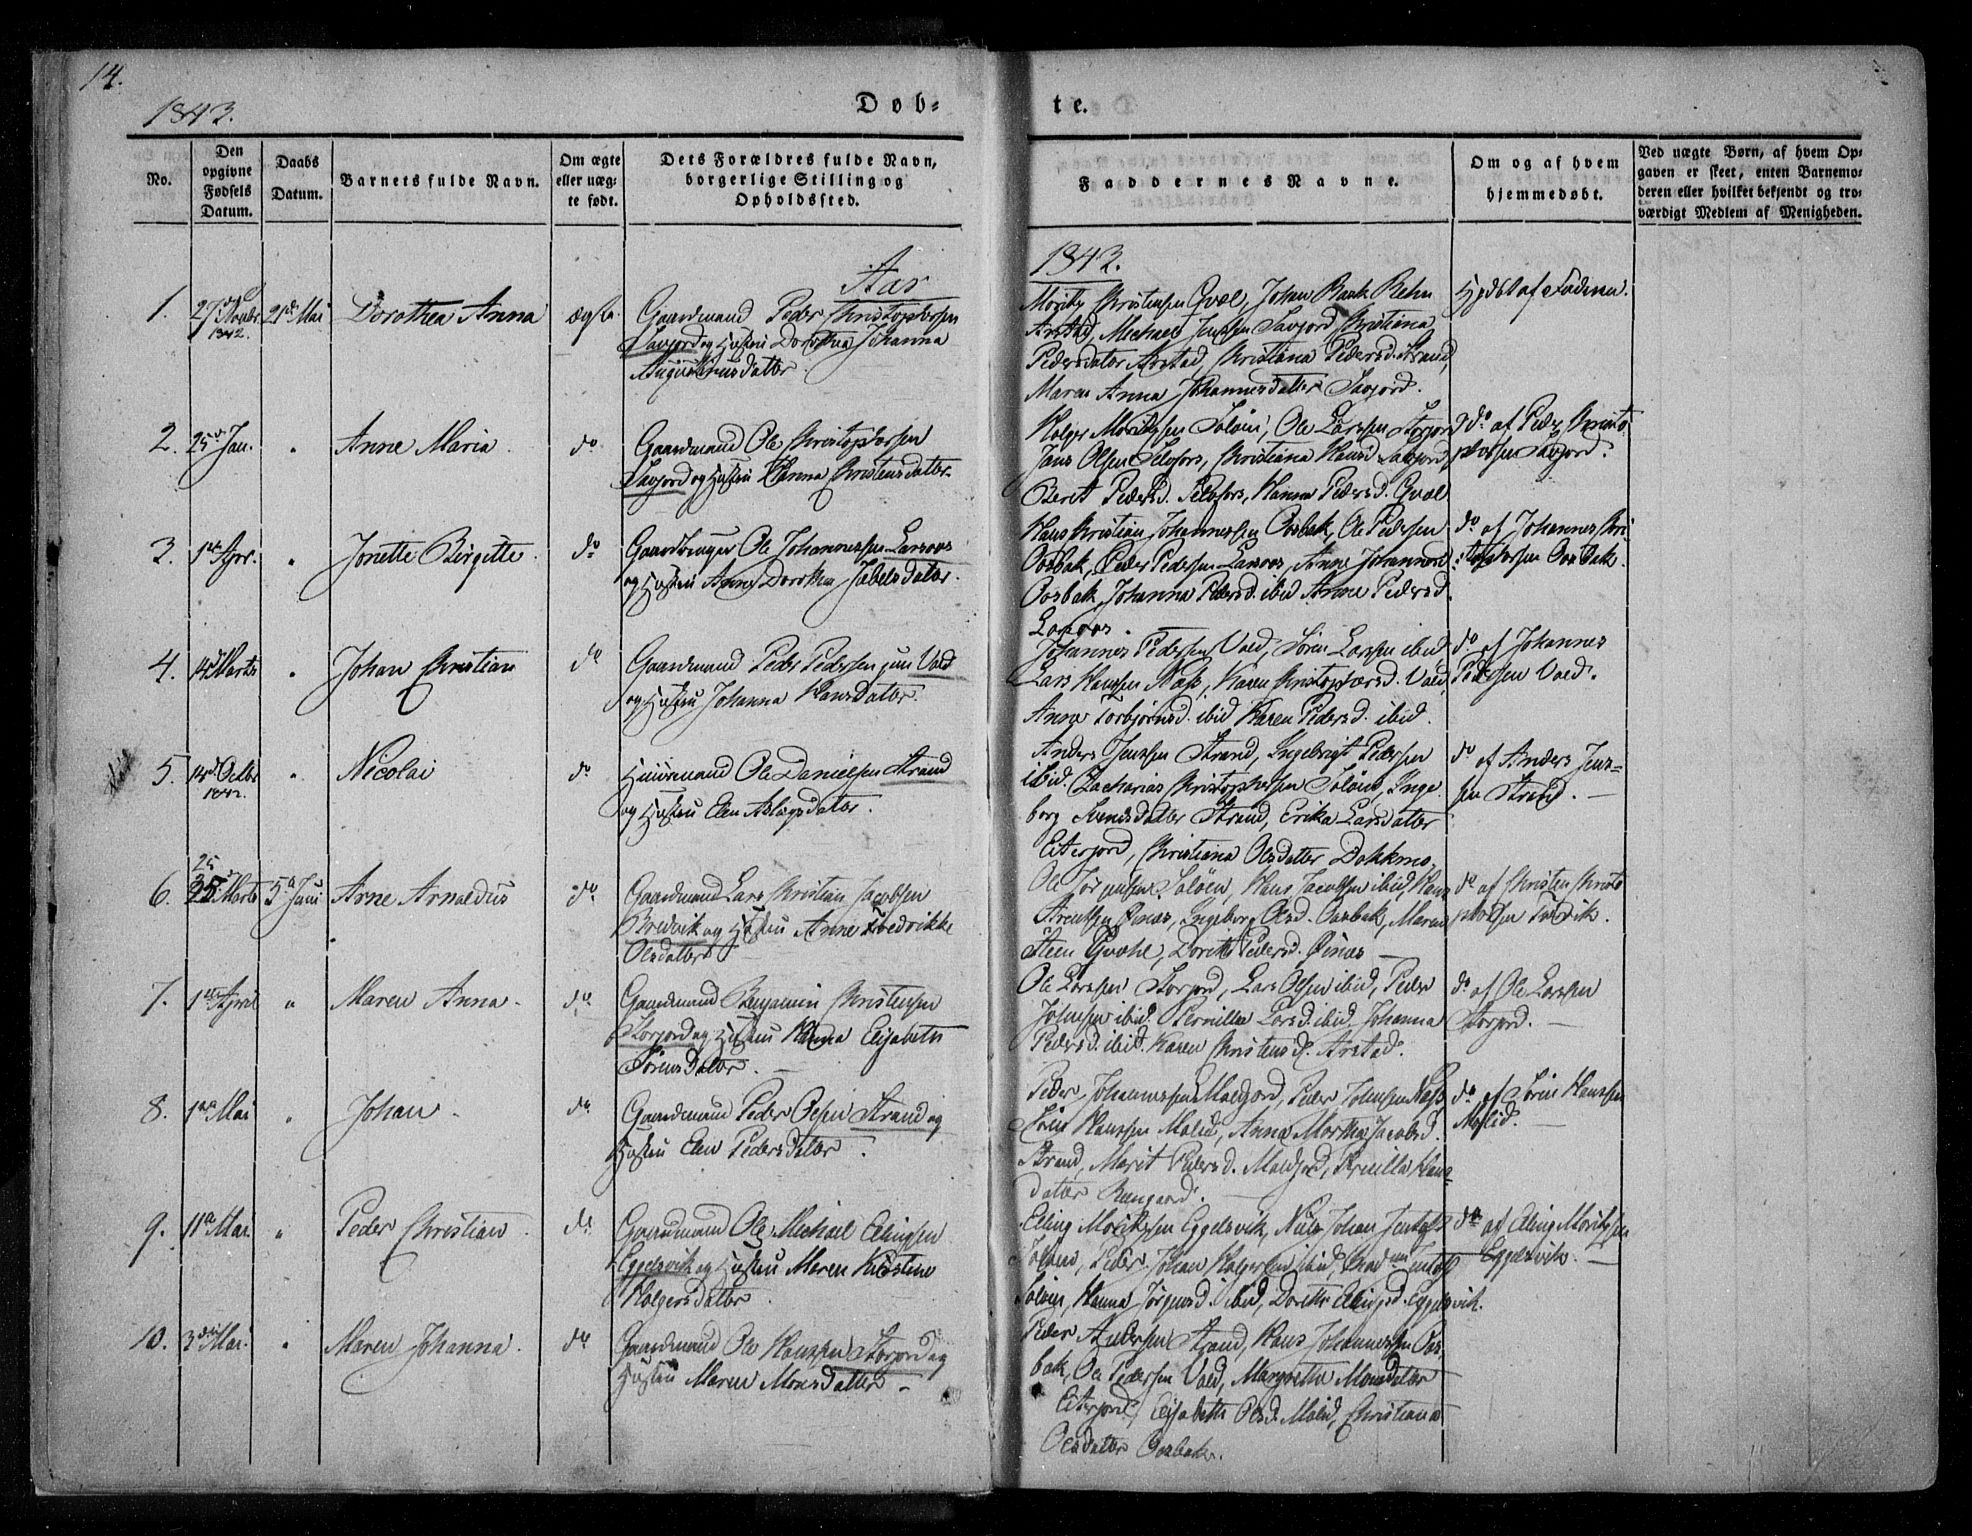 14.
1843.
Døb-
te.
No.
Den
opgivne
Fødsels
Datum.
Daabs
Datum.
Barnets fulde Navn.
Om ægte
eller uæg-
te født.
Dets Forældres fulde Navn,
borgerlige Stilling og
Opholdssted.
Faddernes Navne.
Om og af hvem
hjemmedøbt.
Ved uægte Børn, af hvem Op-
gaven er skeet, enten Barnemo-
deren eller hvilket bekjendt og tro-
værdigt Medlem af Menigheden.
Aar
1843.
1. 27de Novbr 1842. 21de Mai Dorothea Anna ægte.
Gaardmand Peder Christophersen
Savjord og Hustru Dorothea Johanna
Augustinusdatter.
Moritz Christensen Qvæl, Johan Rask Rehn
Arstad, Michael Jenssen Savjord, Christiana
Pedersdatter Arstad, Christiana Pedersd. Strand,
Maren Anna Johannesdatter Savjord.
Hjdbt af Faderen.
2. 25de Jan. " Anne Maria do
Gaardmand Ole Christophersen
Savjord og Hustru Hanna Christensdatter.
Holger Moritzsen Soløen, Ole Larssen Storjord
Jens Olsen Selfors, Christiana Hansd. Savjord,
Berit Pedersd. Selfors, Hanna Pedersd. Qvæl
do af Peder Christo
phersen Savjord.
3. 1ste Apr. " Jonette Birgitte. do
Gaardbruger Ole Johannessen Larsos
og Hustru Anne Dorothea Jabelsdatter.
Hans Christian Johannessen Oosbak, Ole Pedersen
Oosbak, Peder Pedersen Larsos, Anne Johannesd.
Oosbak, Johanna Pedersd. ibid Anne Pedersd.
Larsos.
do af Johannes Chri-
stophersen Oosbak.
4. 14de Marts " Johan Christian do
Gaardmand Peder Pedersen jun Vold
og Hustru Johanna Hansdatter.
Johannes Pedersen Vold, Søren Larssen ibid
Lars Hanssen Næss, Karen Christophersd. Vold,
Anne Torbjørnsd. ibid Karen Pedersd. ibid.
do af Johannes
Pedersen Vold.
5. 14de Octbr 1842. " Nicolai do
Huusmand Ole Danielsen Strand
og Hustru Elen Aslagsdatter.
Anders Jenssen Strand, Ingebrigt Pedersen
ibid. Zacharias Christophersen Soløen, Inge
borg Svendsdatter Strand, Erika Larsdatter
Eiterjord, Christiana Olsdatter Dokkmo.
do af Anders Jens-
sen Strand.
6. 25 Marts 5te Juni Arne Arnoldus do
Gaardmand Lars Christian Jacobsen
Bredvik og Hustru Anne Fredrikke
Olsdatter
Ole Jørgensen Soløen, Hans Jacobsen ibid, Hans
Arentsen Øinæs, Ingeborg Olsd. Oosbak, Maren
Steen Qvæhl, Dorethe Pedersd. Øinæs
do af Christen Christo
phersen
7. 1ste April " Maren Anna. do
Gaardmand Benjamin Christensen
Storjord og Hustru Hanna Elisabeth
Sørensdatter.
Ole Larssen Storjord, Lars Olsen ibid, Peder
Johnsen ibid. Pernille Larsd. ibid, Johanna
Pedersd. ibid. Karen Christensd. Arstad.
do af Ole Larssen
Storjord.
8. 1ste Mai " Johan. do
Gaardmand Peder Olsen Strand og
Hustru Elen Pedersdatter.
Peder Johannessen Moldjord, Peder Johnsen Næss
Søren Hanssen Molid, Anna Martha Jacobsd.
Strand, Marit Pedersd. Moldjord, Pernilla Hans-
datter
do af Søren Hanssen
Molid.
9. 11te Mai. " Peder Christian. do
Gaardmand Ole Michael Elingsen
Eggelsvik og Hustru Maren Kirstine
Holgersdatter.
Eling Moritzsen Eggelsvik, Niels Johan Jentoft
Soløen, Peder Johan Holgersen ibid, Jentoft
Soløen, Hanna Jørgensd. ibid, Dorethe Elingsd. Eggelsvik.
do af Eling Moritzsen
Eggelsvik.
10. 3die Mai. " Maren Johanna. do
Gaardmand Ole Hanssen Storjord og
Hustru Maren Monsdatter
Peder Andersen Strand, Hans Johannessen Oos
bak, Ole Pedersen Vold, Margrethe Monsdatter
Eiterjord, Elisabeth Olsd. Molid, Christiana
Olsdatter Oosbak.